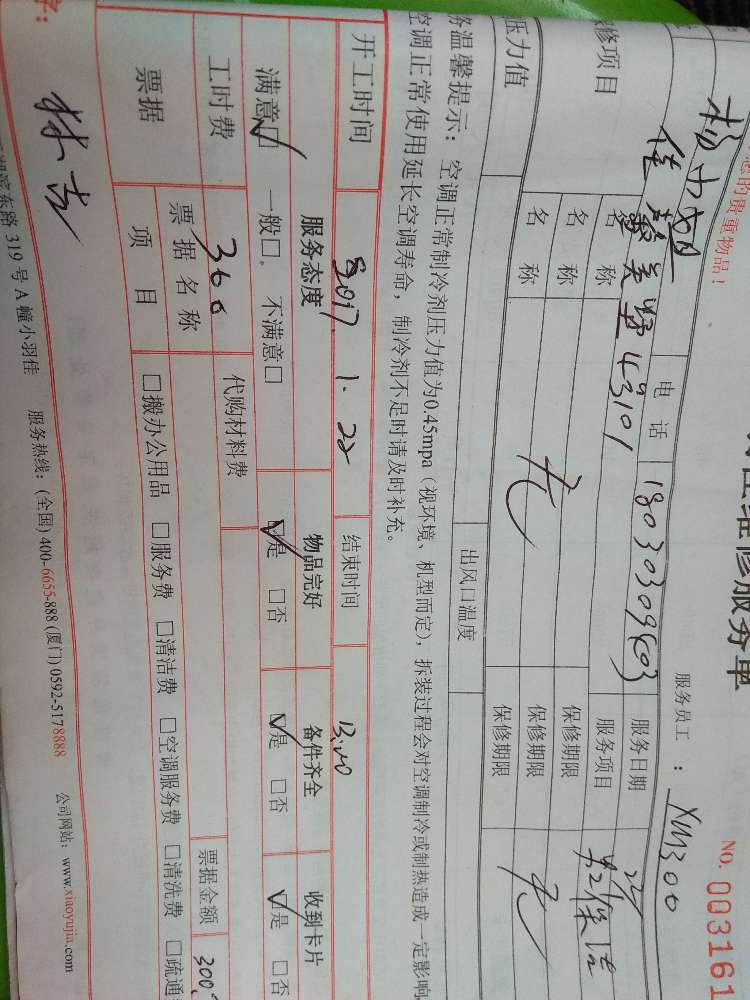 维修服务单
NO. 003161
您的贵重物品！
服务员工：XM300
杨小姐 电话 18030309403 服务日期 22
修项目
名称 服务项目
名称 保修期限 无
名称 无 保修期限
保修期限
压力值 出风口温度
务温馨提示：空调正常制冷剂压力值为0.45mpa（视环境、机型而定），拆装过程会对空调制冷或制热造成一定影响
空调正常使用延长空调寿命，制冷剂不足时请及时补充。
开工时间 2017. 1. 22 结束时间
服务态度 物品完好 备件齐全 收到卡片
满意☑ 一般□ 不满意□ ☑是 □否 ☑是 □否 ☑是 □否
工时费 300 代购材料费
票据 票据名称 票据金额 300
项目 □搬办公用品 □服务费 □清洁费 □空调服务费 □清洗费 □疏通
字：
湖滨东路 319 号 A 幢小羽佳 服务热线：(全国) 400-6655-888 (厦门) 0592-5178888 公司网站：www.xiaoyujia.com